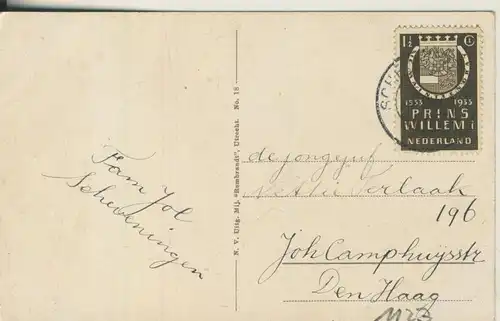 1½ Ct
1533 1933
PRINS
WILLEM I
NEDERLAND
SCH
N. V. Uitg. Mij. "Rembrandt", Utrecht. No. 18
Fam Jol
Scheveningen
de jongejuf
Nellie Verlaak
196
Joh Camphuysstr
Den Haag